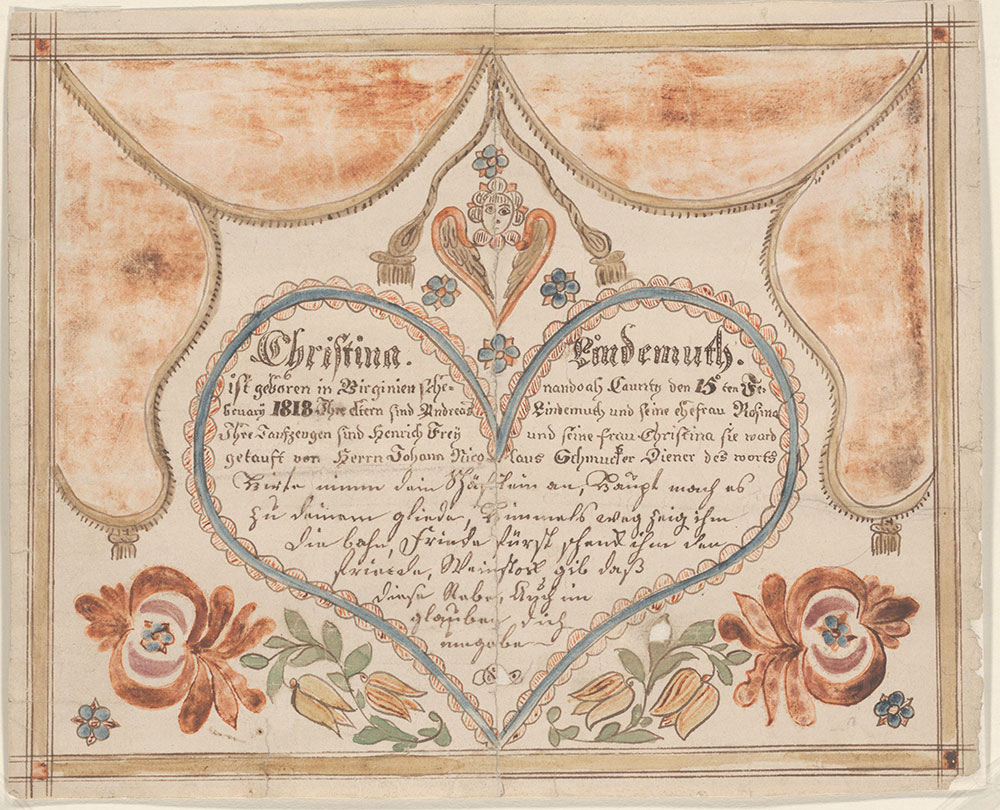 Christina. Lindemuth.
ist geboren in Virginien sche- nandoah Caunty den 15ten Fe-
bruary 1818 Ihre eltern sind Andreas Lindemuth und seine ehefrau Rosina
Ihre Taufzeugen sind Henrich Frey und seine frau Christina sie ward
getauft von Herrn Johann Nico laus Schmucker Diener des worts
Hirte nimm dein Schäflein an, Haupt mach es
zu deinem gliede, Himmels weg zeig ihm
die bahn, Friede fürst schenk ihm den
friede, Weinstock gib daß
diese Rebe, Auch im
glauben dich
umgebe